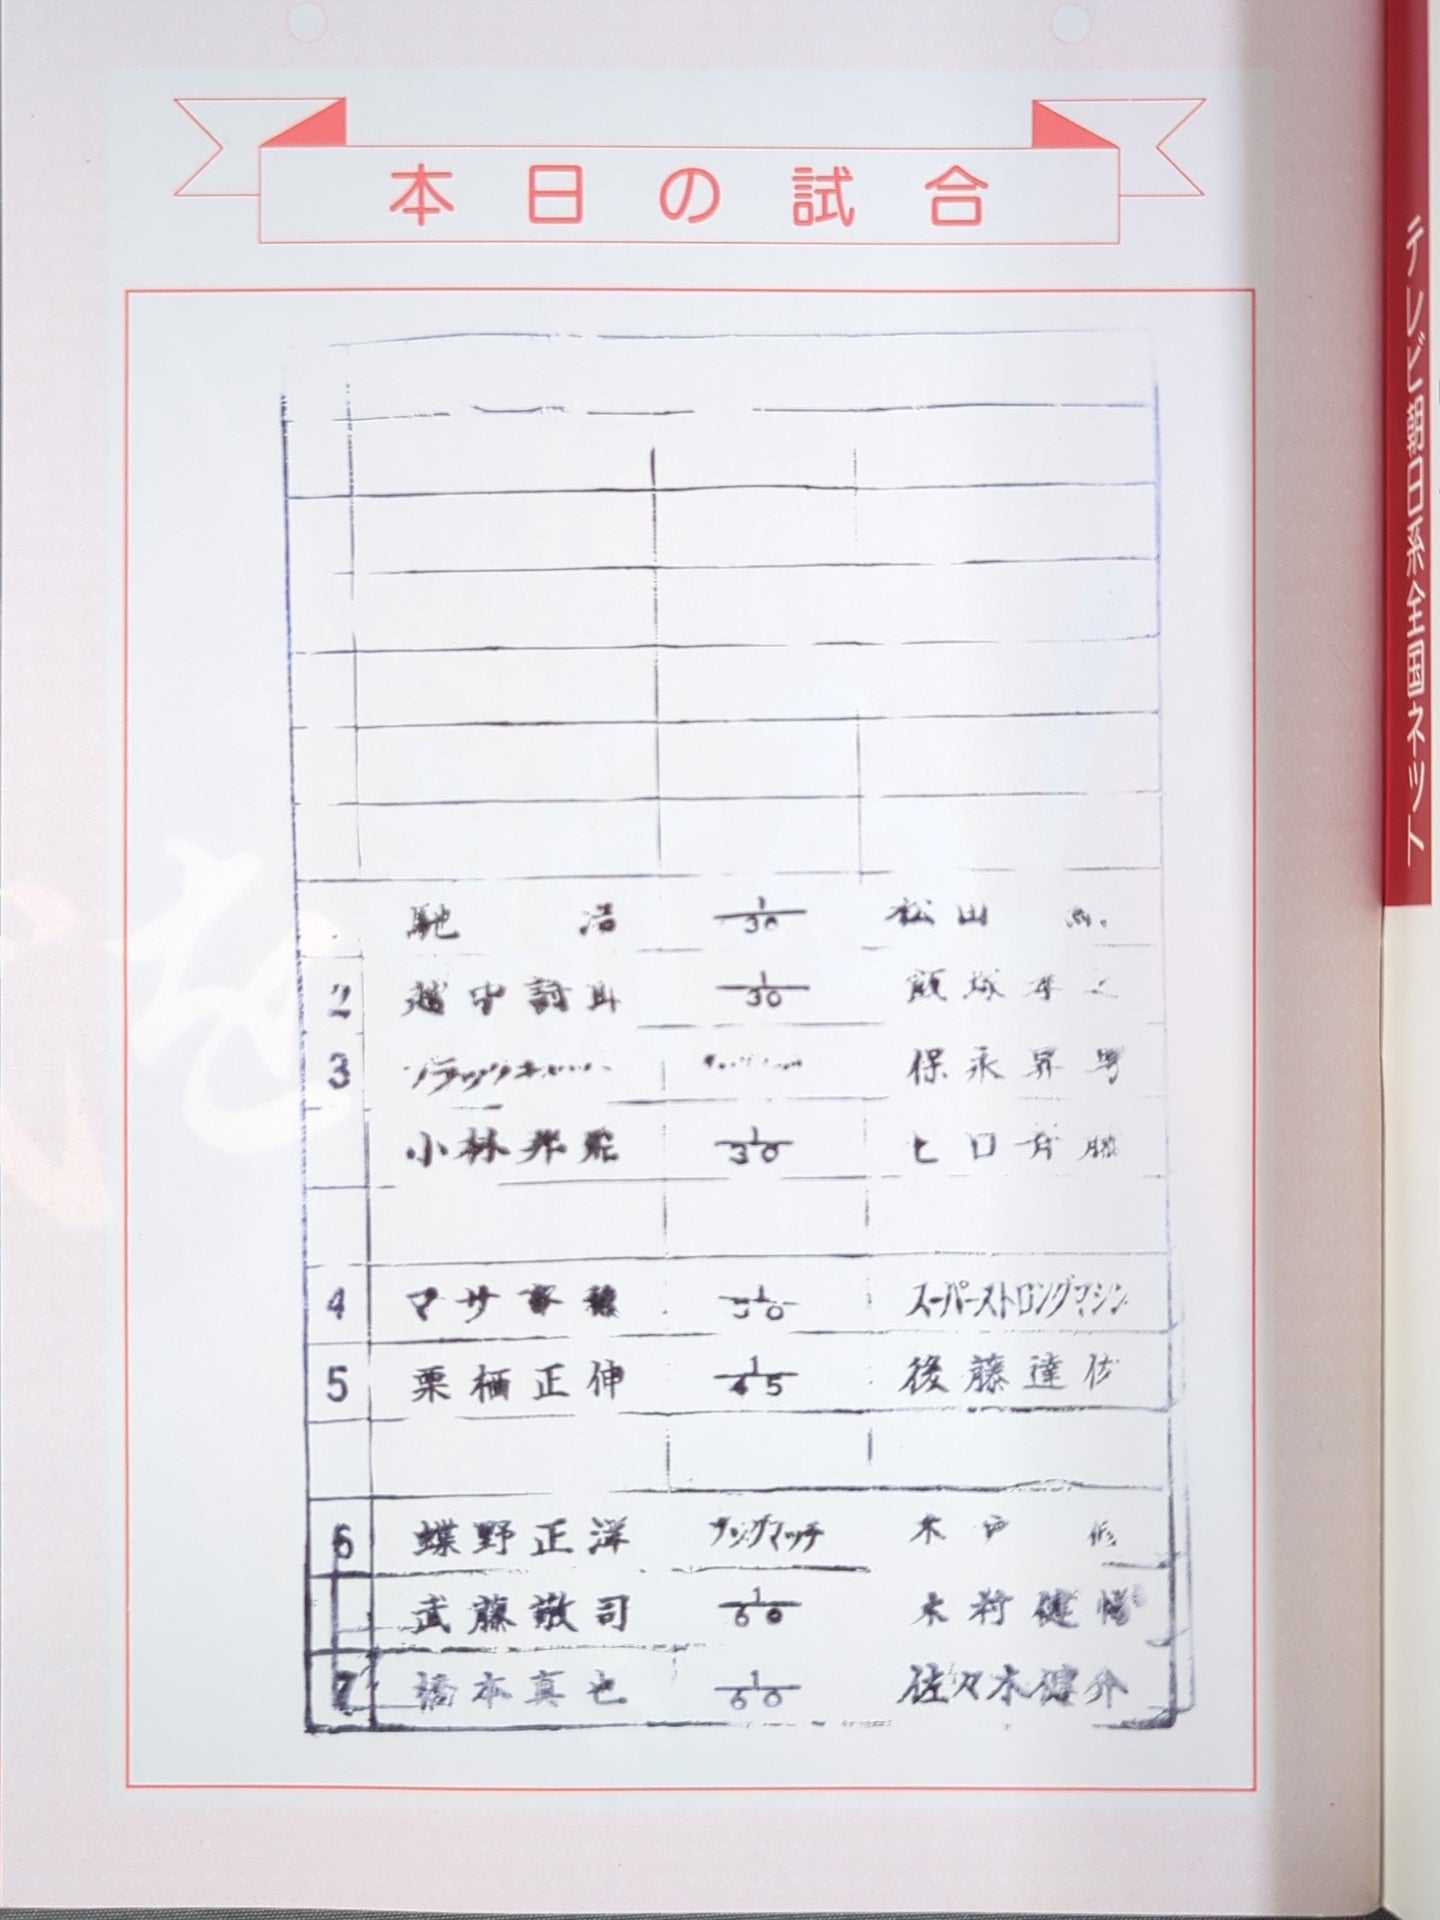 本日の試合
馳 浩 1/30 松山
2 越中詩郎 1/30 飯塚孝之
3 ブラックキャット 保永昇男
小林邦昭 1/30 ヒロ斉藤
4 マサ斎藤 1/30 スーパーストロングマシン
5 栗栖正伸 1/45 後藤達俊
6 蝶野正洋 タッグマッチ 木戸 修
武藤敬司 1/60 木村健悟
7 橋本真也 1/60 佐々木健介
テレビ朝日系全国ネット